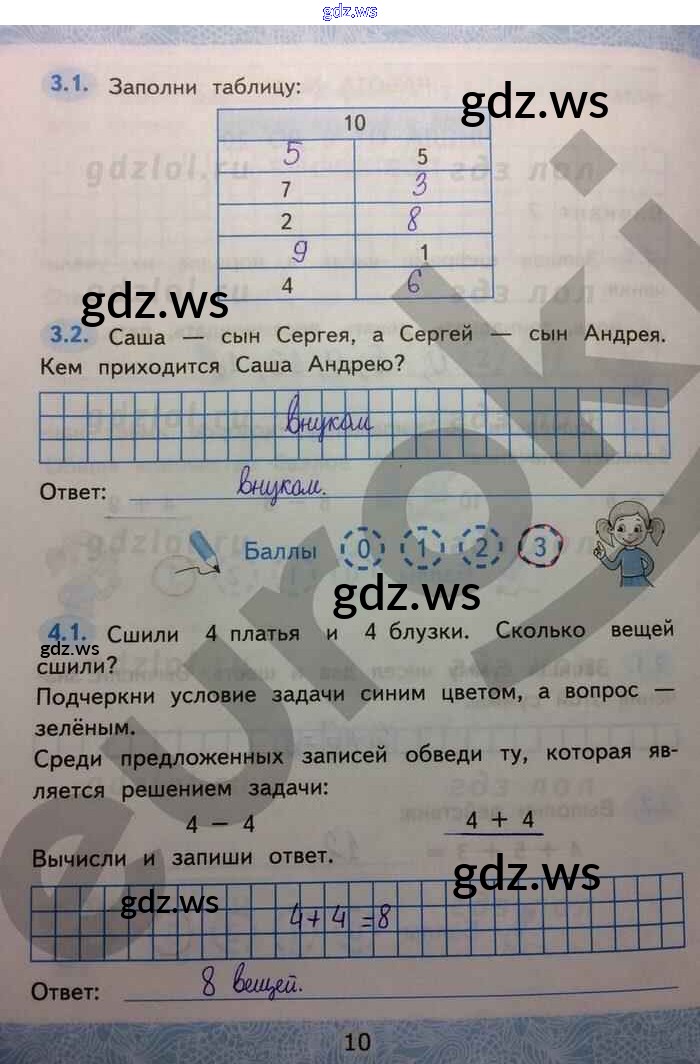 gdz.ws
3.1. Заполни таблицу:
gdz.ws
10
5 5
7 3
2 8
9 1
4 6
gdz.ws
3.2. Саша — сын Сергея, а Сергей — сын Андрея.
Кем приходится Саша Андрею?
внуком
Ответ: внуком.
Баллы 0 1 2 3
gdz.ws
4.1. Сшили 4 платья и 4 блузки. Сколько вещей
gdz.ws
сшили?
Подчеркни условие задачи синим цветом, а вопрос —
зелёным.
Среди предложенных записей обведи ту, которая яв-
ляется решением задачи:
4 − 4 4 + 4
Вычисли и запиши ответ.
gdz.ws
gdz.ws
4+4=8
Ответ: 8 вещей.
10
euroki